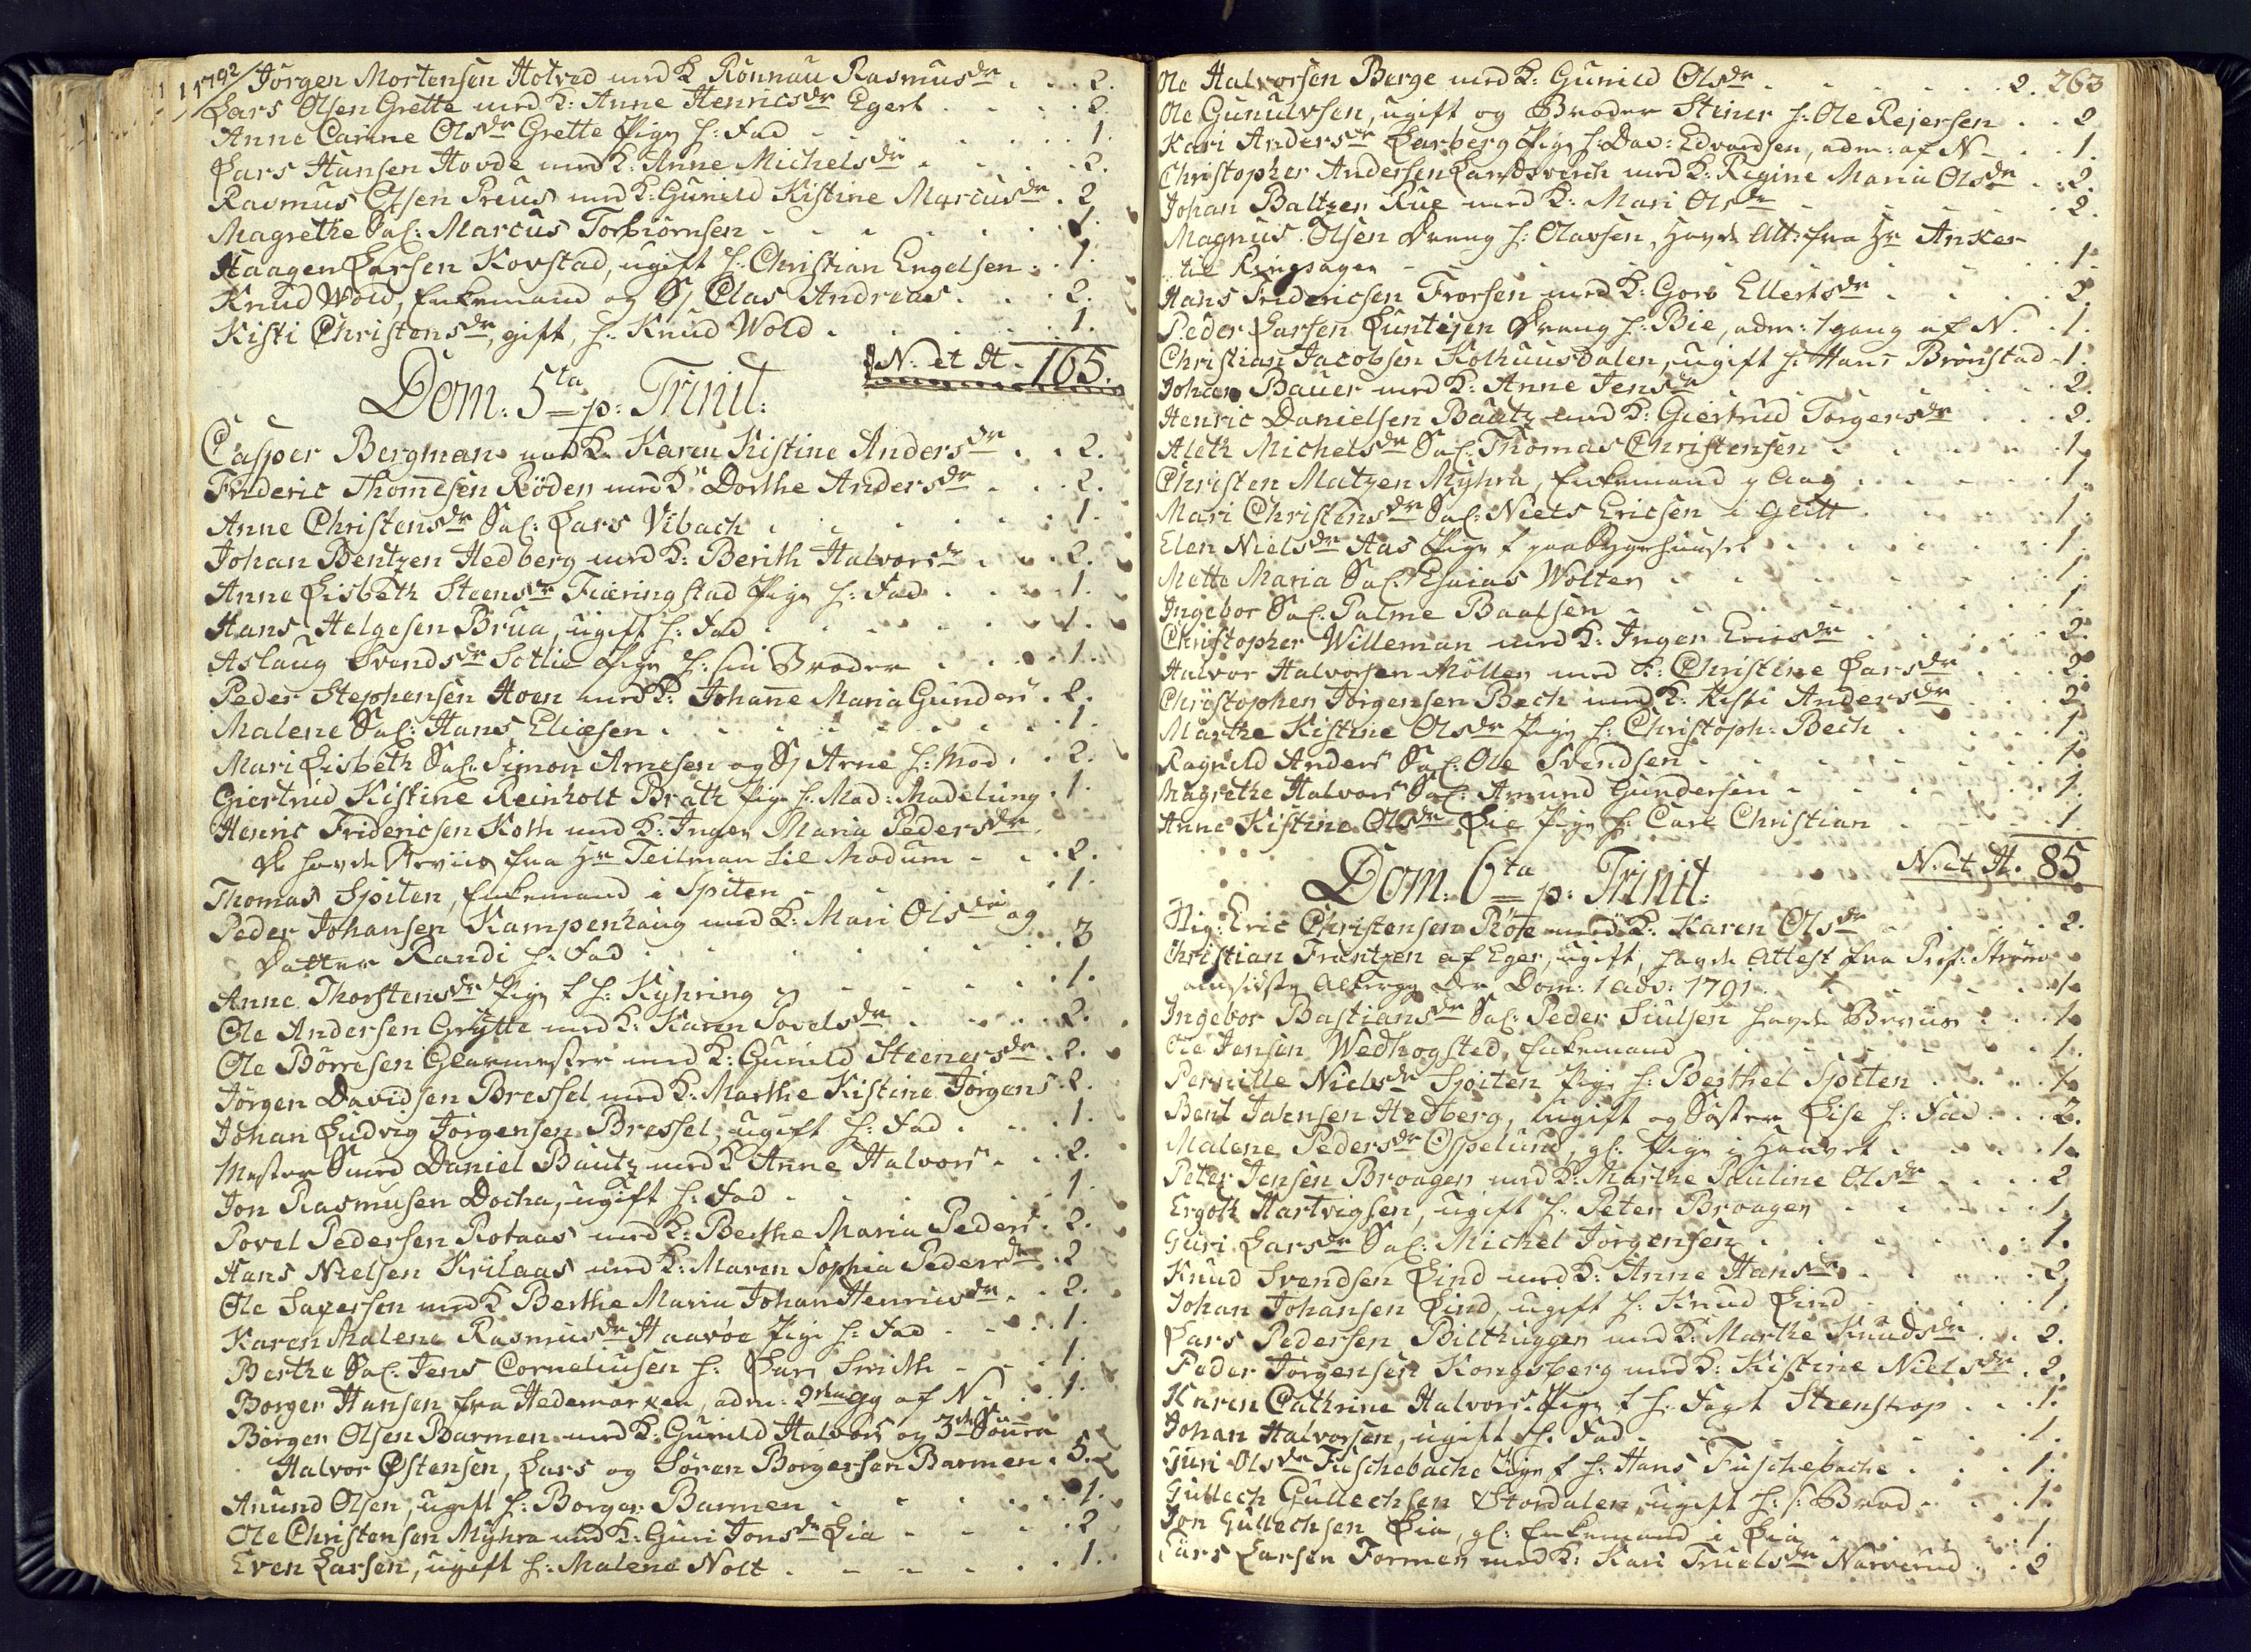 1792/ Jörgen Mortensen Hotvad med K. Rönnau Rasmusdr . . 2.
Lars Olsen Grette med K: Anne Henricsdr Egert . . . 2.
Anne Carine Olsdr Grette Pige h: Fad . . . 1.
Lars Hansen Hovde med K: Anne Michelsdr . . . 2.
Rasmus Olsen Preus med K: Gunild Kistine Marcusdr . 2
Magrethe Sal: Marcus Torbiörnsen . . . 1.
Haagen Larsen Kovstad, ugift h: Christian Engelsen . 1.
Knud Wold, Enkemand og Sj Clas Andreas . . . 2.
Kisti Christensdr, gift, h: Knud Wold . . . 1.
N: et H. 165.
Dom: 5ta p: Trinit:
Casper Bergman med K. Karen Kistine Andersdr . . 2.
Frideric Thomesen Röden med K: Dorthe Andersdr . . . 2.
Anne Christensdr Sal: Lars Vibach . . . 1.
Johan Bentzen Hedberg med K: Berith Halvorsdr . . 2.
Anne Lisbeth Steensdr Fiæringstad Pige h: Fad . . . 1.
Hans Helgesen Brua, ugift h: Fad . . . 1.
Aslaug Svendsdr Sotlie Pige h: sin Broder . . . 1.
Peder Stephensen Hoen med K: Johane Maria Gunders . 2.
Malene Sal: Hans Eliæsen . . . 1.
Mari Lisbeth Sal: Simon Arnesen og Sj Arne h: Mod . . 2.
Giertrud Kistine Reinholt Brath Pige h: Mad: Madelung . 1.
Henric Fridericsen Koth med K: Inger Maria Pedersdr
de havde Beviis fra Hr Teilman til Modum . . . 2.
Thomas Spiten, Enkemand i Spiten . . . 1.
Peder Johansen Kampenhaug med K: Mari Olsdr og
Datter Randi h: Fad . . . 3
Anne Thorstensdr Pige f h: Kyhring . . . 1.
Ole Andersen Grytte med K: Karen Povelsdr . . . 2.
Ole Börresen Glarmester med K: Gunild Steenersdr . 2.
Jörgen Davidsen Bressel med K: Marthe Kistine Jörgens 2.
Johan Ludvig Jörgensen Bressel, ugift h: Fad . . . 1.
Mester Smed Daniel Bautz med K Anne Halvors . . 2.
Jon Rasmusen Docka, ugift h: Fad . . . 1.
Povel Pedersen Rotaas med K: Berthe Maria Peders . 2.
Hans Nielsen Krilaas med K: Maren Sophia Pedersdr . 2
Ole Sagersen med K Berthe Maria Johan Henricsdr . . 2.
Karen Malene Rasmusdr Haavöe Pige h: Fad . . . 1.
Berthe Sal: Jens Corneliusen h: Lars Smith . . . 1.
Borger Hansen fra Hedemarken, adm: 2den gg af N. . . 1.
Börger Olsen Barmen med K: Gunild Halvors og 3de Sönner
Halvor Østensen, Lars og Sören Börgersen Barmen . 5.
Anund Olsen, ugift h: Borger Barmen . . . 1.
Ole Christensen Myhra med K: Guri Jonsdr Lia . . . 2
Even Larsen, ugift h: Malene Nolt . . . 1.
263
Ole Halvorsen Berge med K: Gunild Olsdr . . . 2.
Ole Gunulvsen, ugift og Broder Stiner h: Ole Rejersen . . 2
Kari Andersdr Larberg Pige h: Dav: Edvardsen, adm: af N . . 1.
Christopher Andersen Landsverch med K: Regine Maria Olsdr . 2.
Johan Baltzer Rue med K: Mari Olsdr . . . 2.
Magnus Olsen Dreng h: Olavsen, havde Att: fra Hr Anker
til Ringsager . . . 1.
Hans Fridericsen Frorsen med K: Goro Ellertsdr . . . 2.
Peder Larsen Luntejen Dreng h: Bie, adm: 1 gang af N. . 1.
Christian Jacobsen Kolhuusdalen, ugift h: Hans Brönstad . 1.
Johan Bauer med K: Anne Jensdr . . . 2.
Henric Danielsen Bautz med K: Giertrud Torgersdr . . . 2.
Aleth Michelsdr Sal: Thomas Christensen . . . 1.
Christen Matzen Myhra, Enkemand . . . 1.
Mari Christensdr Sal: Niels Ericsen i Glitt . . . 1.
Elen Nielsdr Aas Pige f paa Sygehuuset . . . 1.
Mette Maria Sal: Esaias Wolter . . . 1.
Ingebor Sal: Palme Baalsen . . . 1
Christopher Willeman med K: Inger Ericsdr . . . 2.
Halvor Halvorsen Möller med K: Christine Larsdr . . . 2.
Christopher Jörgensen Bech med K: Kisti Andersdr . . . 2
Marthe Kistine Olsdr Pige h: Christoph: Bech . . . 1.
Ragnild Anders Sal: Ole Svendsen . . . 1.
Magrethe Halvors Sal: Amund Gundersen . . . 1.
Anne Kistine Olsdr Lie Pige h: Carl Christian . . . 1.
N: et H. 85
Dom: 6ta p: Trinit:
Stig: Eric Christensen Röte med K: Karen Olsdr . . . 2.
Christian Frantzen af Eger, ugift, havde Attest fra Prof: Ström
om sidste Alterg: der Dom: 1 adv: 1791. . . . 1.
Ingebor Bastiansdr Sal: Peder Siulsen havde Beviis . . . 1.
Ole Jensen Wedhogsted, Enkemand . . . 1.
Pernille Nielsdr Spiten Pige h: Berthel Spiten . . . 1.
Bent Johnsen Hedberg, ugift og Söster Lise h: Fad . . 2.
Malene Pedersdr Ospelund, gl: Pige i Huuset . . . 1.
Peter Jensen Braager med K: Marthe Pauline Olsdr . . . 2
Ergoth Hartvigsen, ugift h: Peter Braager . . . 1.
Guri Larsdr Sal: Michel Jörgensen . . . 1.
Knud Svendsen Lind med K: Anne Hansdr . . . 2.
Johan Johansen Lind, ugift h: Knud Lind . . . 1.
Lars Pedersen Bilthugger med K: Marthe Knudsdr . . 2.
Peder Jörgensen Kongsberg med K: Kistine Nielsdr . 2.
Karen Cathrine Halvors: Pige f h: Fogt Steenstrop . . 1.
Johan Halvorsen, ugift h: Fad . . . 1.
Guri Olsdr Fuschebache Pige f h: Hans Fuschebache . . . 1.
Gullech Gullechsen Stordalen, ugift h: s: Brod . . . 1.
Jon Gullechsen Lia, gl: Enkemand i Lia . . . 1.
Lars Larsen Former med K: Kari Truelsdr Narverud . . 2